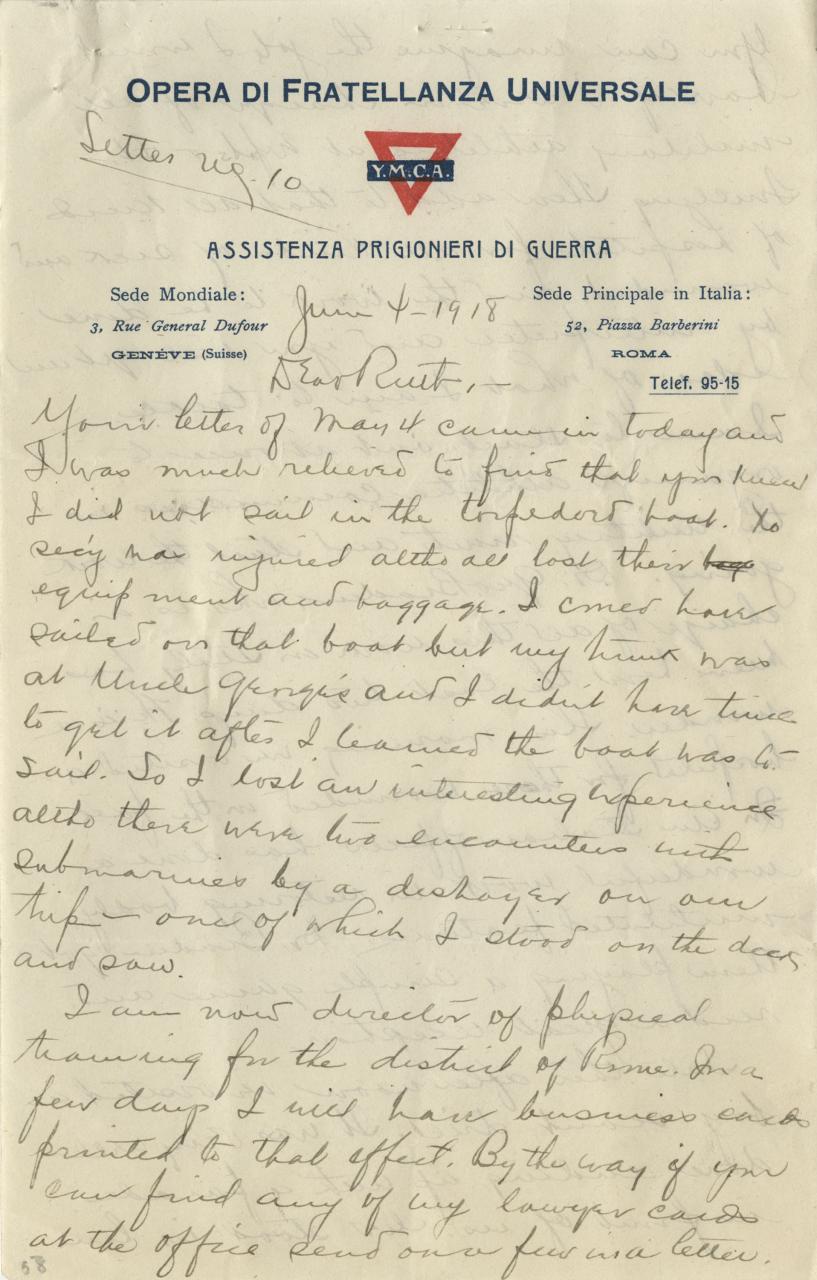 OPERA DI FRATELLANZA UNIVERSALE
Letter No. 10
Y.M.C.A.
ASSISTENZA PRIGIONIERI DI GUERRA
Sede Mondiale:
3, Rue General Dufour
GENÈVE (Suisse)
June 4-1918
Sede Principale in Italia:
52, Piazza Barberini
ROMA
Telef. 95-15
Dear Ruth,—
Your letter of May 4 came in today and
I was much relieved to find that you knew
I did not sail in the torpedord boat. No
sec'y was injured altho all lost their
equipment and baggage. I could have
sailed on that boat but my trunk was
at Uncle George's and I didn't have time
to get it after I learned the boat was to
sail. So I lost an interesting experience
altho there were two encounters with
submarines by a destroyer on our
trip — one of which I stood on the deck
and saw.
I am now director of physical
training for the district of Rome. In a
few days I will have business cards
printed to that effect. By the way if you
can find any of my lawyer cards
at the office send on a few in a letter.
58